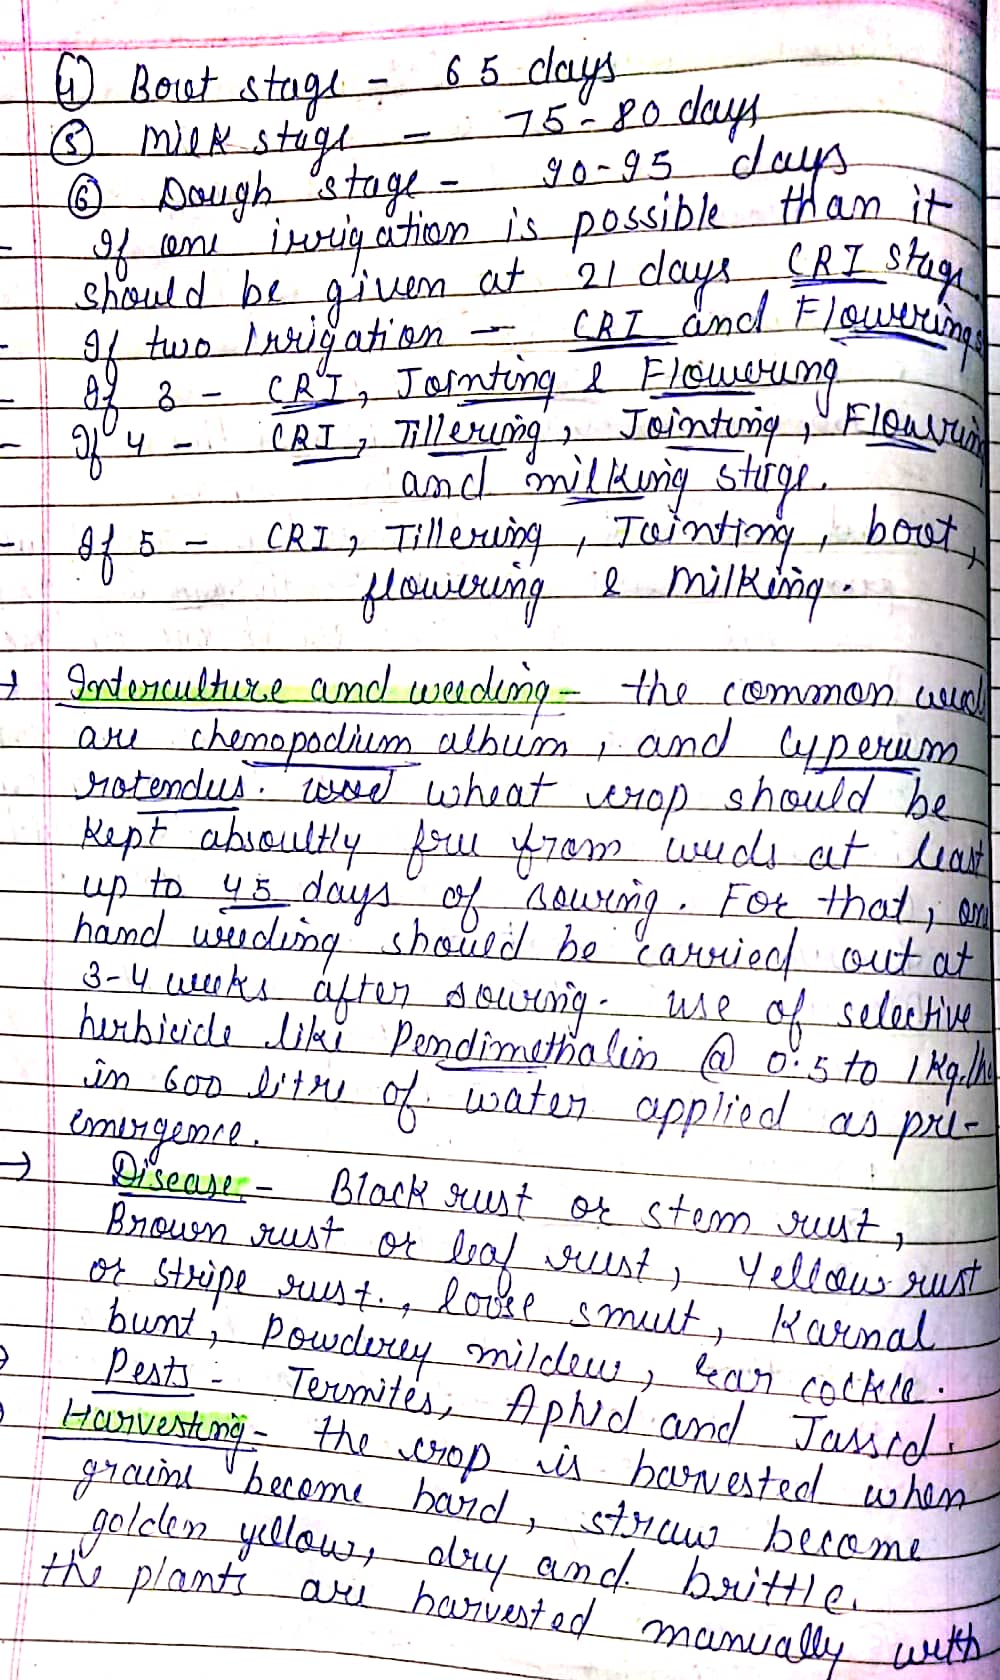 ④ Boot stage - 65 days
⑤ Milk stage - 75-80 days
⑥ Dough stage - 90-95 days
- If one irrigation is possible than it
should be given at 21 days CRI stage.
- If two Irrigation - CRI and Flowerings
- If 3 - CRI, Jointing & Flowering
- If 4 - CRI, Tillering, Jointing, Flowring
and milking stage.
- If 5 - CRI, Tillering, Jointing, boot,
flowering & Milking.
→ Interculture and weeding - the common weed
are chenopodium album, and Cyperum
rotendus. wheat crop should be
kept absoultly free from weeds at least
up to 45 days of sowing. For that, one
hand weeding should be carried out at
3-4 weeks after sowing. use of selective
herbicide like Pendimethalin @ 0.5 to 1 kg/ha
in 600 litre of water applied as pre-
emergence.
→ Disease - Black rust or stem rust,
Brown rust or leaf rust, Yellow rust
or stripe rust., loose smut, Karnal
bunt, Powderey mildew, Ear cockle.
→ Pests - Termites, Aphid and Jassid.
→ Harvesting - the crop is harvested when
grains become hard, straw become
golden yellow, dry and brittle.
the plants are harvested manually with